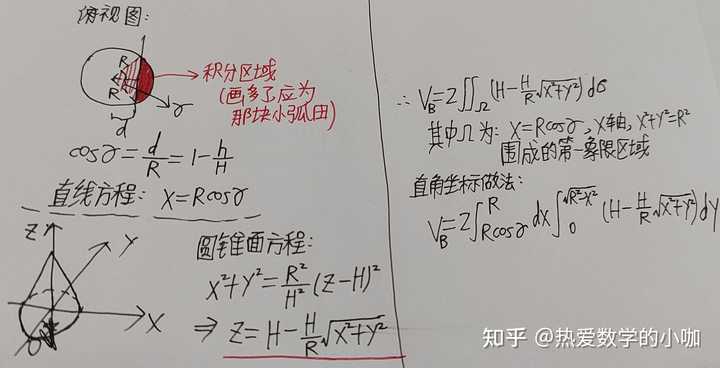 俯视图:
R
R
d
γ
积分区域
(画多了应为
那块小弧田)
cosγ = d/R = 1 - h/H
直线方程: X=Rcosγ
Z
Y
X
O
圆锥面方程:
X²+Y² = R²/H² (Z-H)²
⇒ Z = H - H/R √(X²+Y²)
∴ V_B = 2∬_Ω (H - H/R √(X²+Y²)) dσ
其中Ω为: X=Rcosγ, X轴, X²+Y²=R²
围成的第一象限区域
直角坐标做法:
V_B = 2∫_{Rcosγ}^{R} dx ∫_0^{√(R²-X²)} (H - H/R √(X²+Y²)) dy
知乎 @热爱数学的小咖